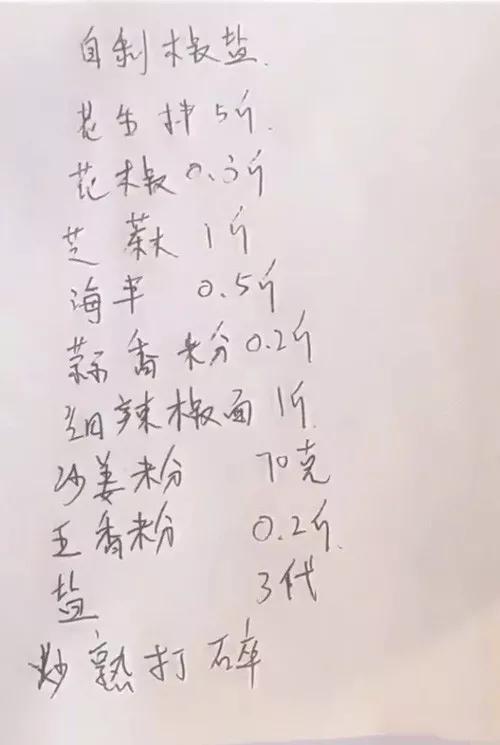 自制椒盐.
花生拌5斤.
花椒0.3斤
芝蔴1斤
海半 0.5斤
蒜香粉0.2斤
细辣椒面1斤.
沙姜粉 70克
王香粉 0.2斤.
盐 3代
炒熟打碎